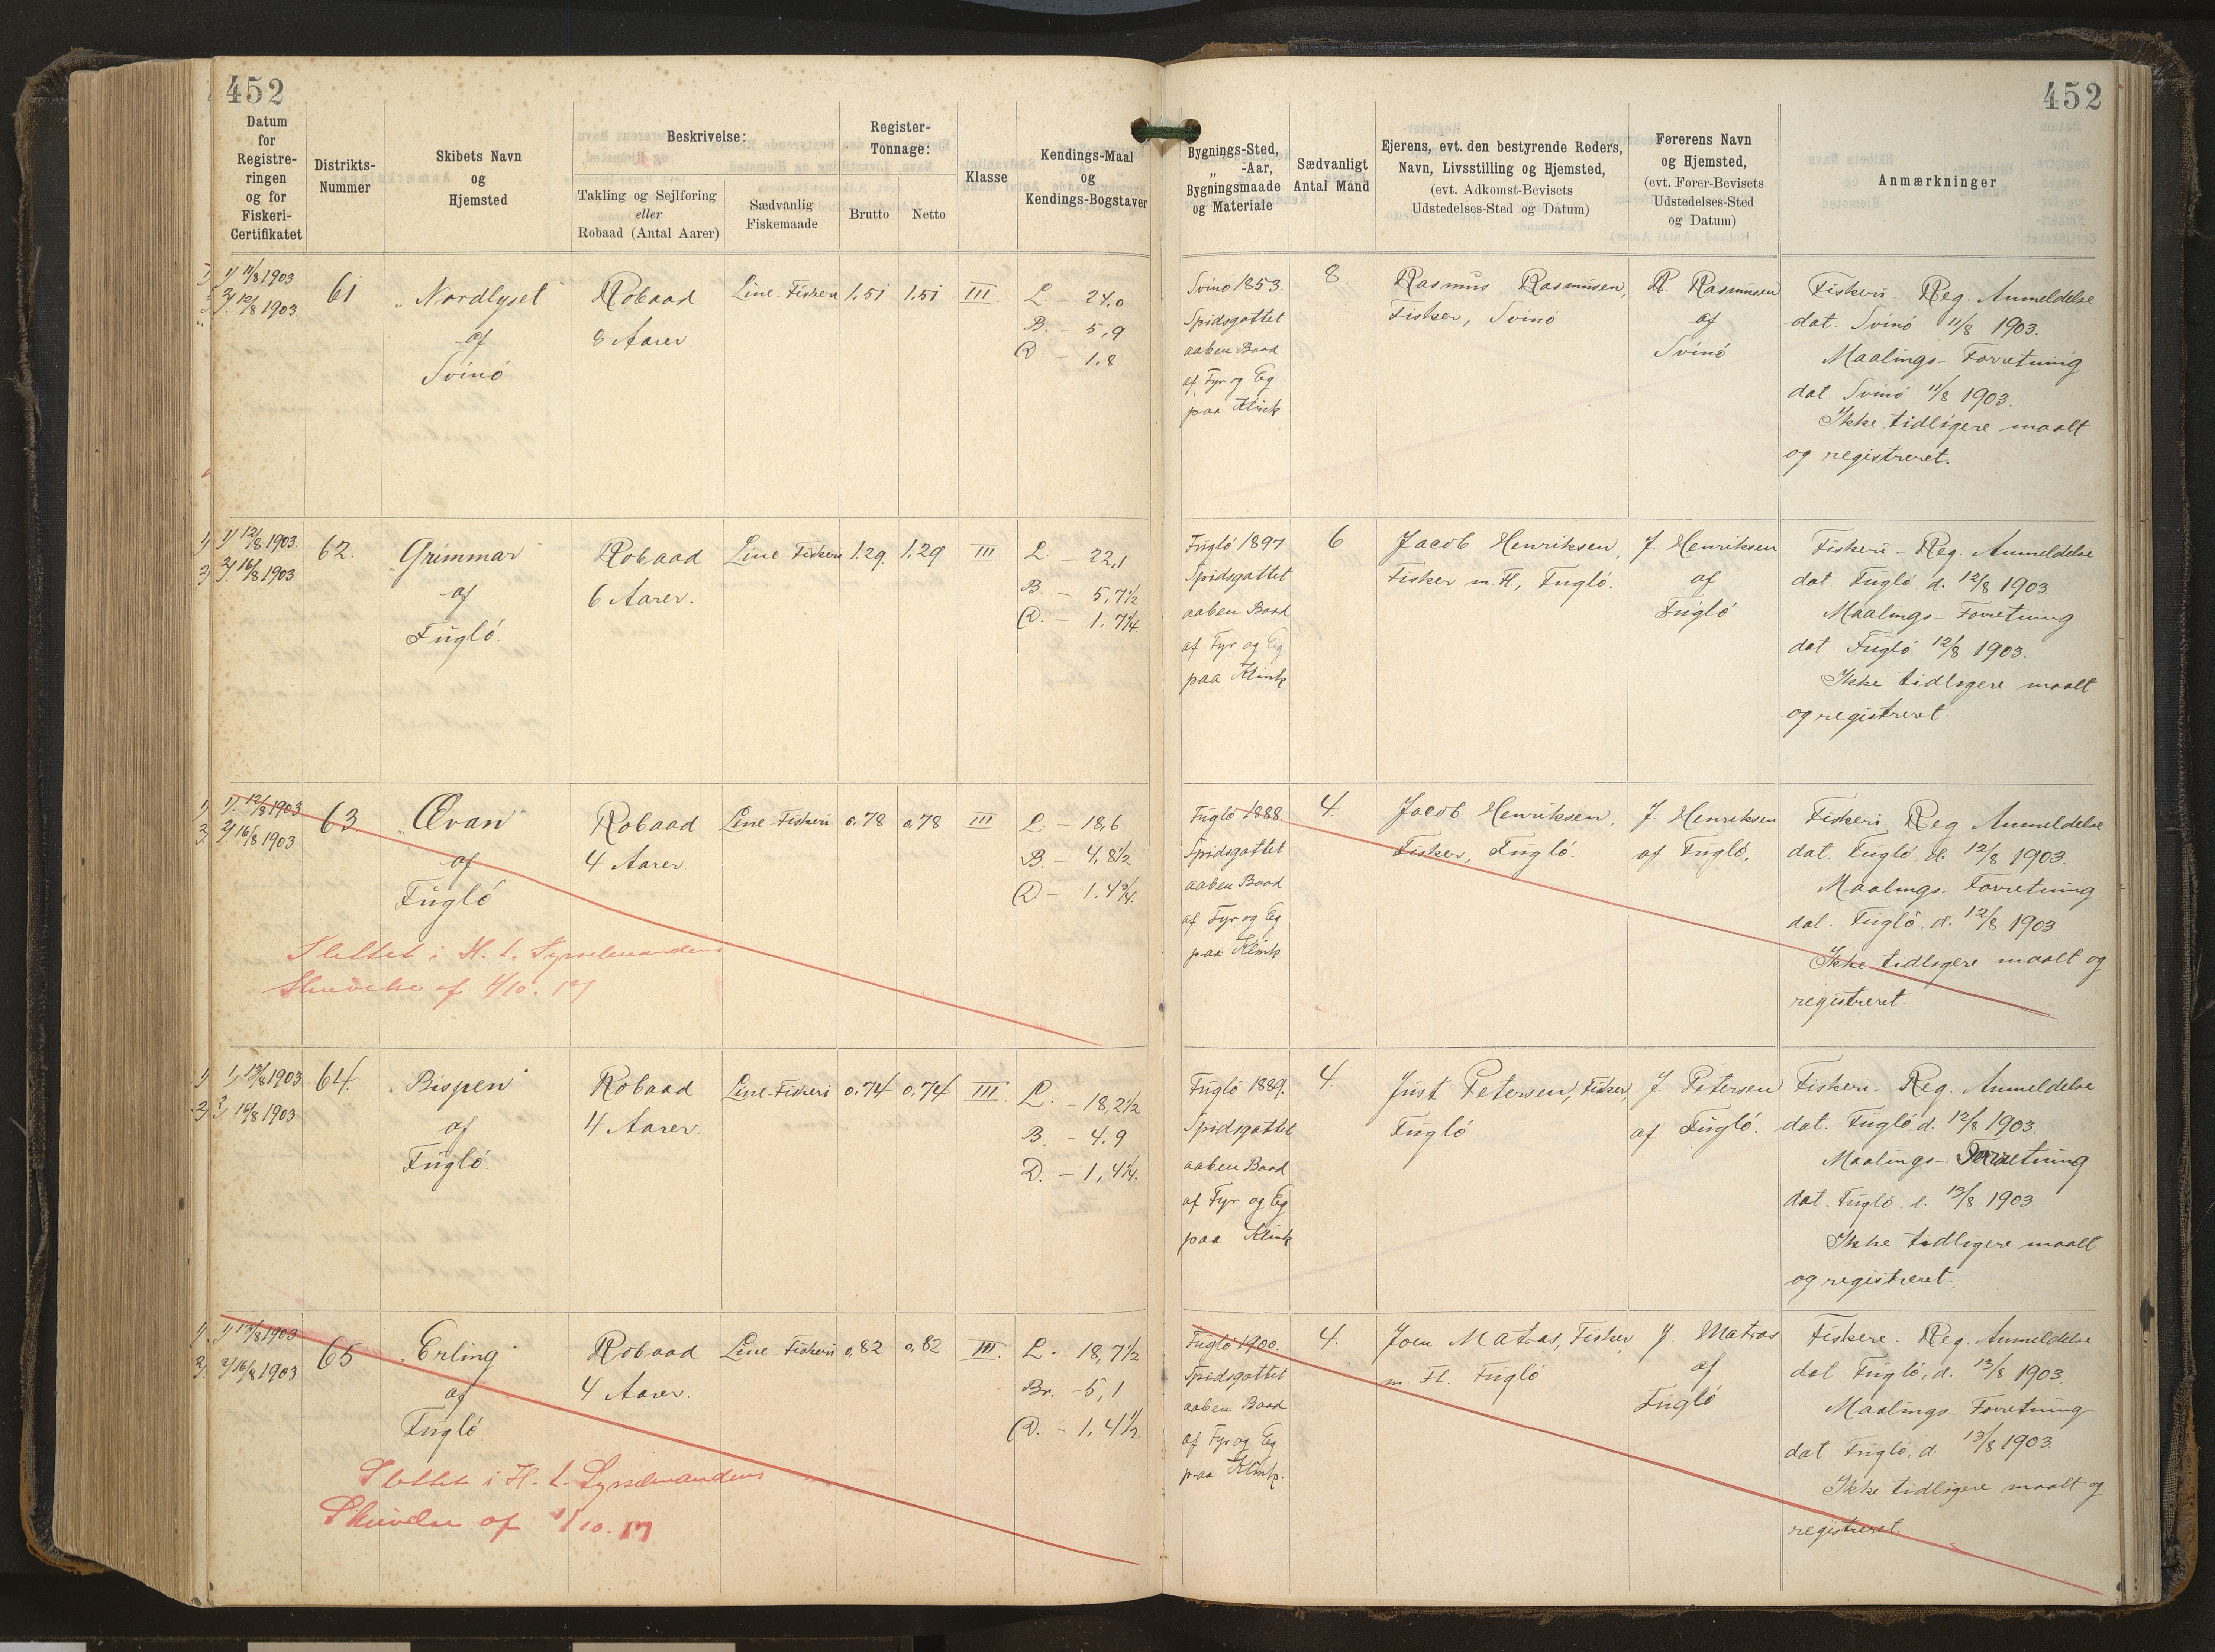 452
452
Datum
for
Registre-
ringen
og for
Fiskeri-
Certifikatet
Distrikts-
Nummer
Skibets Navn
og
Hjemsted
Beskrivelse:
Takling og Sejlføring
eller
Robaad (Antal Aarer)
Sædvanlig
Fiskemaade
Register-
Tonnage:
Brutto
Netto
Klasse
Kendings-Maal
og
Kendings-Bogstaver
Bygnings-Sted,
„ -Aar,
Bygningsmaade
og Materiale
Sædvanligt
Antal Mand
Ejerens, evt. den bestyrende Reders,
Navn, Livsstilling og Hjemsted,
(evt. Adkomst-Bevisets
Udstedelses-Sted og Datum)
Førerens Navn
og Hjemsted,
(evt. Fører-Bevisets
Udstedelses-Sted
og Datum)
Anmærkninger
1) 11/8 1903
2) 12/8 1903
61
„Nordlyset"
af
Svinó
Robaad
8 Aarer.
Line-Fiskeri
1,51
1,51
III
L. - 24,0
B. - 5,9
D. - 1,8
Svinó 1853.
Spidsgattet
aaben Baad
af Fyr og Eg
paa Klink
8.
Rasmus Rasmussen,
Fisker, Svinó
R. Rasmussen
af
Svinó
Fiskeri-Reg. Anmeldelse
dat. Svinó 11/8 1903.
Maalings-Forretning
dat. Svinó 11/8 1903.
Ikke tidligere maalt
og registreret.
1) 12/8 1903.
2) 16/8 1903
62.
„Grimmar"
af
Fugló.
Robaad
6 Aarer.
Line Fiskeri
1,29.
1,29
III
L. - 22,1
B. - 5,7½
D. - 1,7¼
Fugló 1897
Spidsgattet
aaben Baad
af Fyr og Eg
paa Klink
6
Jacob Henriksen,
Fisker m. H, Fugló.
J. Henriksen
af
Fugló
Fiskeri-Reg. Anmeldelse
dat. Fugló d. 12/8 1903.
Maalings-Forretning
dat. Fugló 12/8 1903.
Ikke tidligere maalt
og registreret.
1) 12/8 1903
2) 16/8 1903
63
„Œvan"
af
Fugló
Robaad
4 Aarer.
Line-Fiskeri
0,78
0,78
III
L. - 18,6
B. - 4,8½
D - 1.4¾.
Slettet i H. t. Sysselmandens
Skrivelse af 1/10. 17
Fugló 1888.
Spidsgattet
aaben Baad
af Fyr og Eg
paa Klink
4.
Jacob Henriksen,
Fisker, Fugló.
J. Henriksen
af Fugló.
Fiskeri Reg. Anmeldelse
dat. Fugló, d. 12/8 1903.
Maalings-Forretning
dat. Fugló, d. 12/8 1903
Ikke tidligere maalt og
registreret.
1) 13/8 1903
2) 16/8 1903
64.
„Bispen"
af
Fugló.
Robaad
4 Aarer.
Line-Fiskeri
0,74
0,74
III.
L. - 18,2½
B. - 4.9
D. - 1,4¼.
Fugló 1889.
Spidsgattet
aaben Baad
af Fyr og Eg
paa Klink
4.
Just Petersen, Fisker,
Fugló
J. Petersen
af Fugló.
Fiskeri-Reg. Anmeldelse
dat. Fugló, d. 12/8 1903.
Maalings-Forretning
dat. Fugló, d. 13/8 1903.
Ikke tidligere maalt
og registreret.
1) 13/8 1903
2) 16/8 1903
65
„Erling"
af
Fugló
Robaad
4 Aarer.
Line-Fiskeri
0,82
0,82
III.
L. - 18,7½
Br. - 5,1
D. - 1,4½
Slettet i H. t. Sysselmandens
Skrivelse af 1/10. 17
Fugló 1900.
Spidsgattet
aaben Baad
af Fyr og Eg
paa Klink.
4.
Joen Matras, Fisker,
m. Fl. Fugló
J. Matras
af
Fugló
Fiskere-Reg. Anmeldelse
dat. Fugló, d. 13/8 1903.
Maalings-Forretning
dat. Fugló, d. 13/8 1903.
Ikke tidligere maalt og
registreret.